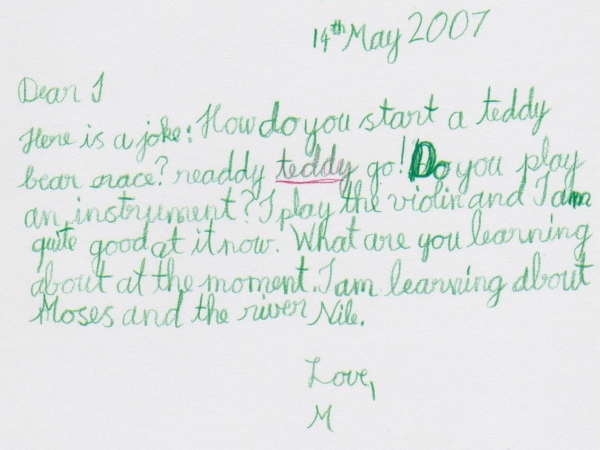 14th May 2007
Dear J
Here is a joke: How do you start a teddy
bear race? readdy teddy go! Do you play
an instrument? I play the violin and I am
quite good at it now. What are you learning
about at the moment. I am learning about
Moses and the river Nile.
Love,
M